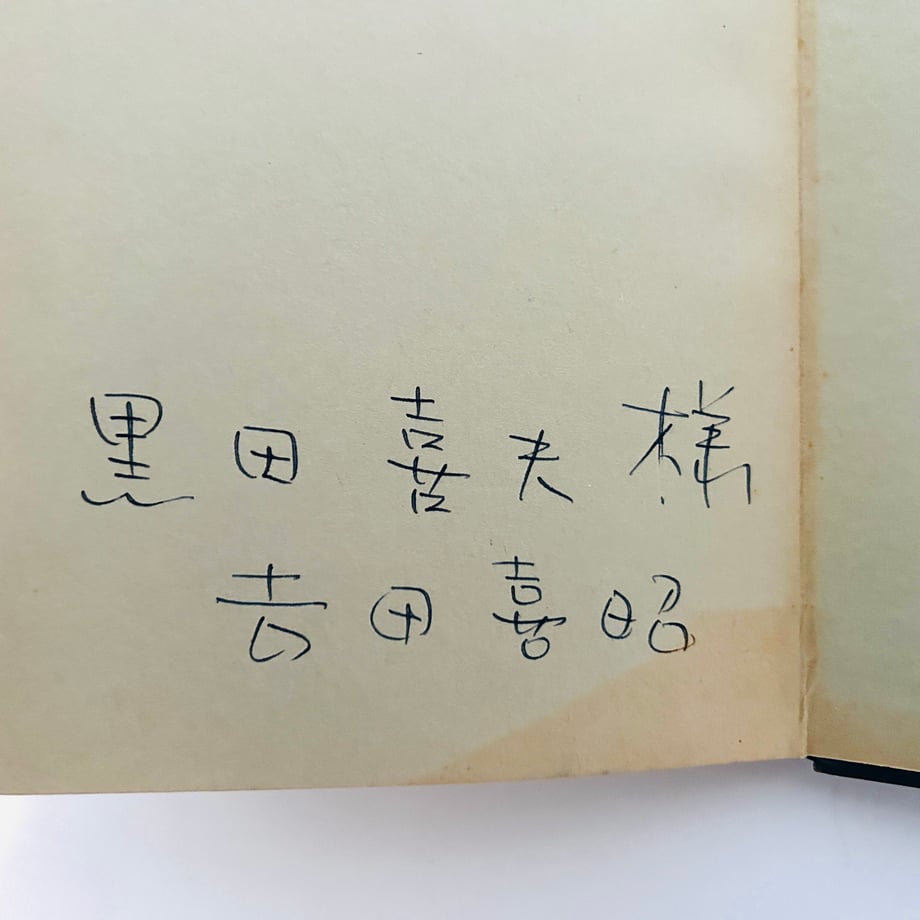 黒田喜夫様
𠮷田喜昭